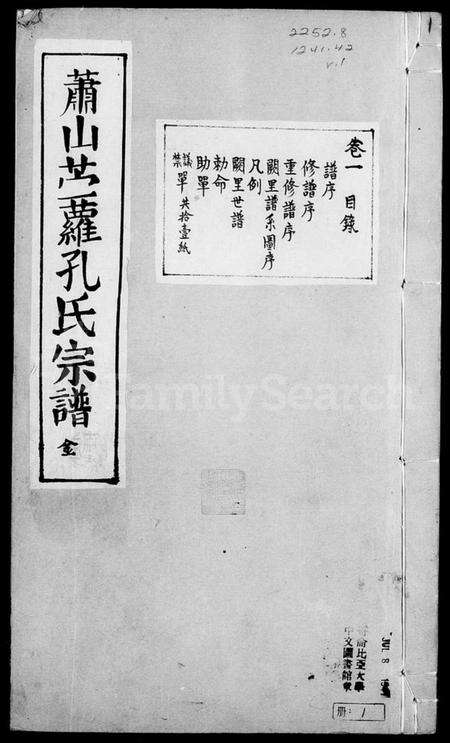 2252.8
1241.42
v.1
蕭山苎蘿孔氏宗譜 全
卷一 目錄
譜序
修譜序
重修譜序
闕里譜系圖序
凡例
闕里世譜
勅命
助單
議禁單 共拾壹紙
FamilySearch
倫比亞大學
中文圖書館藏
JUL 8
冊: 1